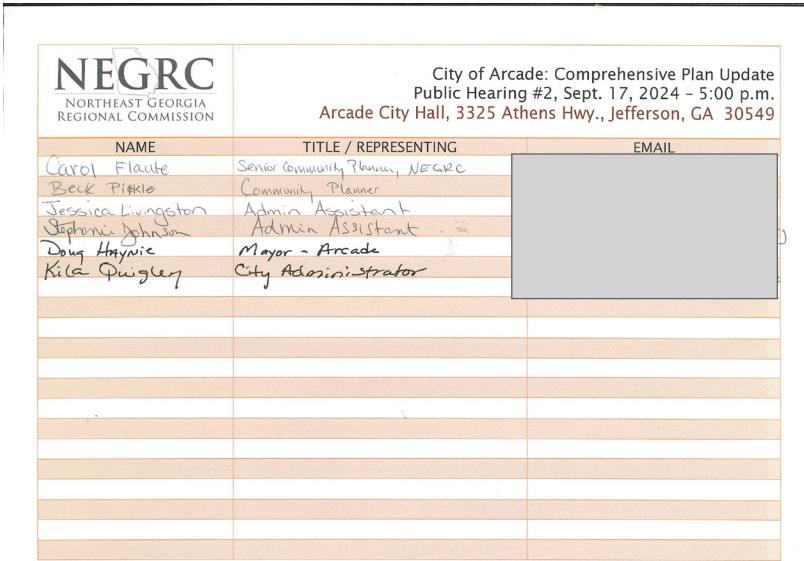 NEGRC
NORTHEAST GEORGIA
REGIONAL COMMISSION
City of Arcade: Comprehensive Plan Update
Public Hearing #2, Sept. 17, 2024 – 5:00 p.m.
Arcade City Hall, 3325 Athens Hwy., Jefferson, GA 30549
NAME TITLE / REPRESENTING EMAIL
Carol Flaute Senior Community Planner, NEGRC
Beck Pickle Community Planner
Jessica Livingston Admin Assistant
Stephanie Johnson Admin Assistant
Doug Haynie Mayor - Arcade
Kila Quigley City Administrator